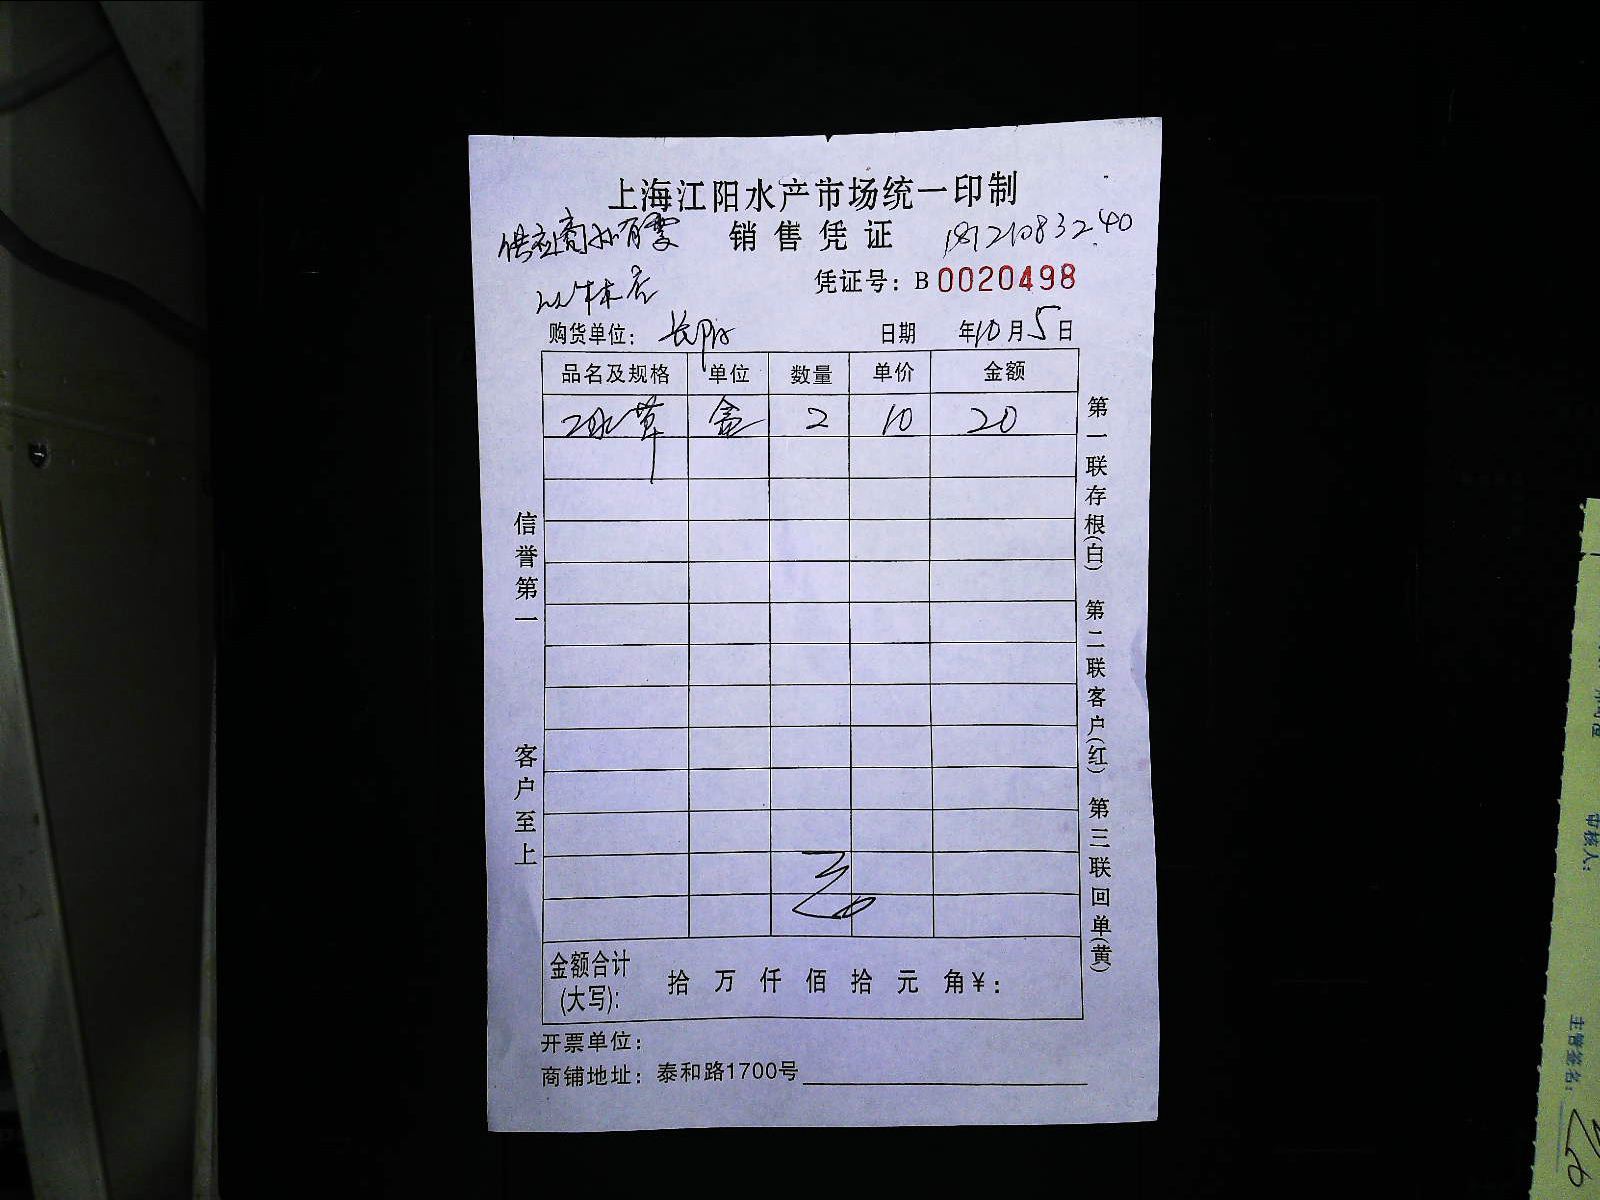 上海江阳水产市场统一印制
供应商
销售凭证
18121083240
凭证号：B 0020498
购货单位：长阳
日期 年10月5日
品名及规格 单位 数量 单价 金额
冰草 盒 2 10 20
信誉第一 客户至上
第一联存根(白) 第二联客户(红) 第三联回单(黄)
金额合计(大写)： 拾 万 仟 佰 拾 元 角 ¥：
开票单位：
商铺地址：泰和路1700号
审核人：
主管签名：